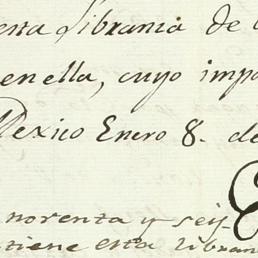 esta librania de
en ella, cuyo impo
Mexico Enero 8. de
norenta y seis
tiene esta libran